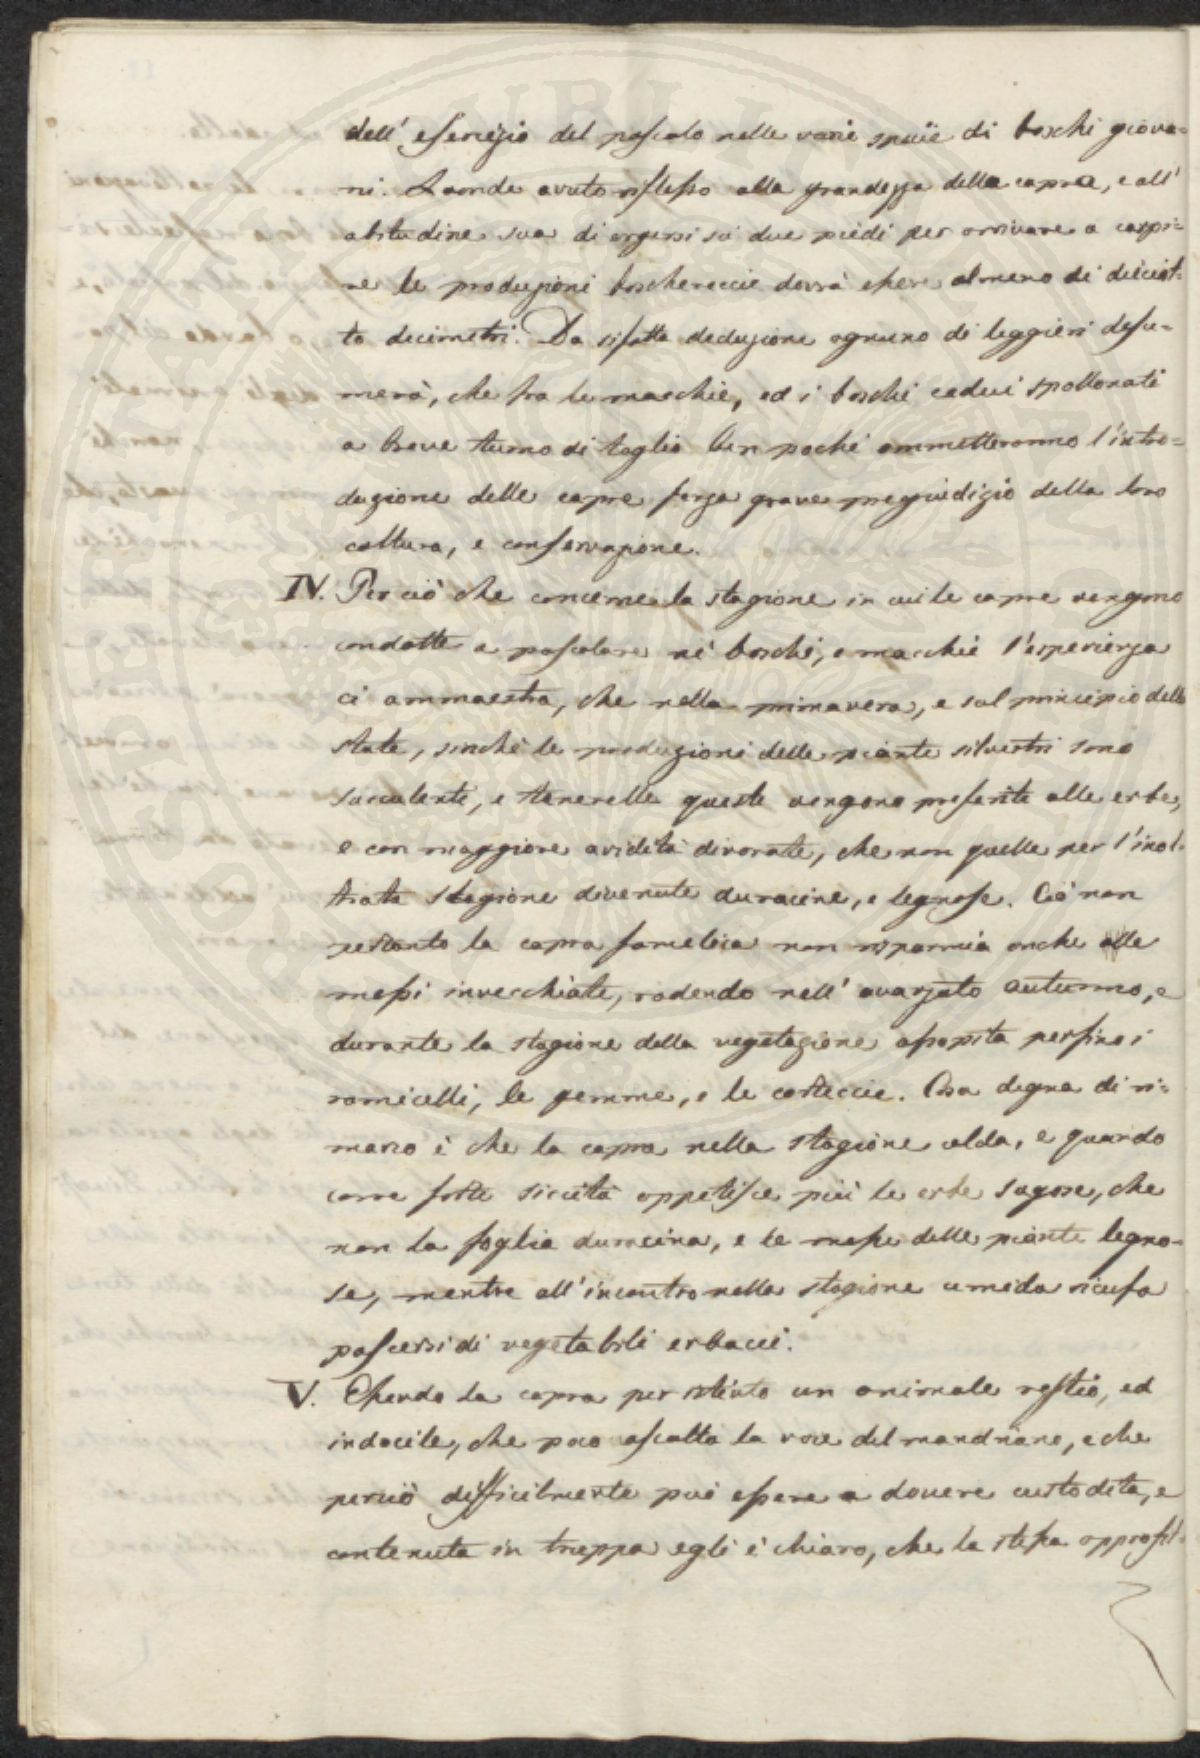 dell' esercizio del pascolo nelle varie spezie di boschi giova-
ni. Laonde avuto riflesso alla grandezza della capra, e all'
abitudine sua di ergersi sui due piedi per arrivare a carpi-
re le produzioni boschereccie dovrà essere almeno di dieciot-
to decimetri. Da sifatta deduzione ognuno di leggieri desu-
merà, che fra le macchie, ed i boschi cedui spollonati
a breve turno di taglio ben pochi ammetteranno l'intro-
duzione delle capre senza grave pregiudizio della loro
coltura, e conservazione.
IV. Per ciò che concerne la stagione in cui le capre vengono
condotte a pascolare ne' boschi, e macchie l'esperienza
ci ammaestra, che nella primavera, e sul principio della
state, sinchè le produzioni delle piante silvestri sono
succulente, e tenerelle queste vengono preferite alle erbe,
e con maggiore avidità divorate, che non quelle per l'inol-
trata stagione divenute duracine, e legnose. Ciò non
pertanto la capra famelica non risparmia anche alle
messi invecchiate, rodendo nell' avanzato autunno, e
durante la stagione della vegetazione assopita persino i
ramicelli, le gemme, e le corteccie. Cosa degna di ri-
marco è che la capra nella stagione calda, e quando
corre forte siccità appetisce più le erbe sugose, che
non la foglia duracina, e le messi delle piante legno-
se, mentre all' incontro nella stagione umida ricusa
pascersi di vegetabili erbacei.
V. Essendo la capra per istinto un animale restio, ed
indocile, che poco ascolta la voce del mandriano, e che
perciò difficilmente può essere a dovere custodita, e
contenuta in truppa egli è chiaro, che la stessa approfit-